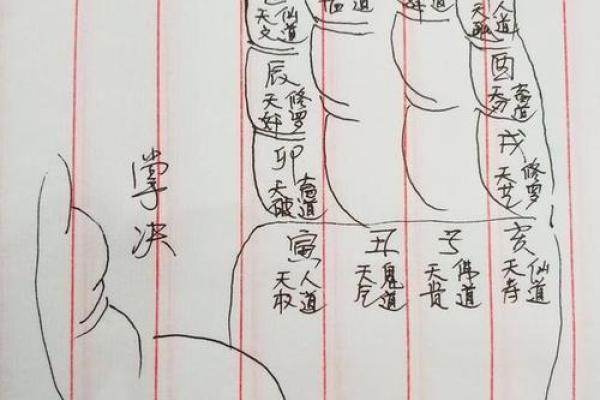 仙道
天文
道
道
人道
辰
天奸
修罗
酉
畜道
卯
天破
畜道
戌
天艺
修罗
掌决
寅
天权
人道
丑
天厄
鬼道
子
天贵
佛道
亥
天寿
仙道